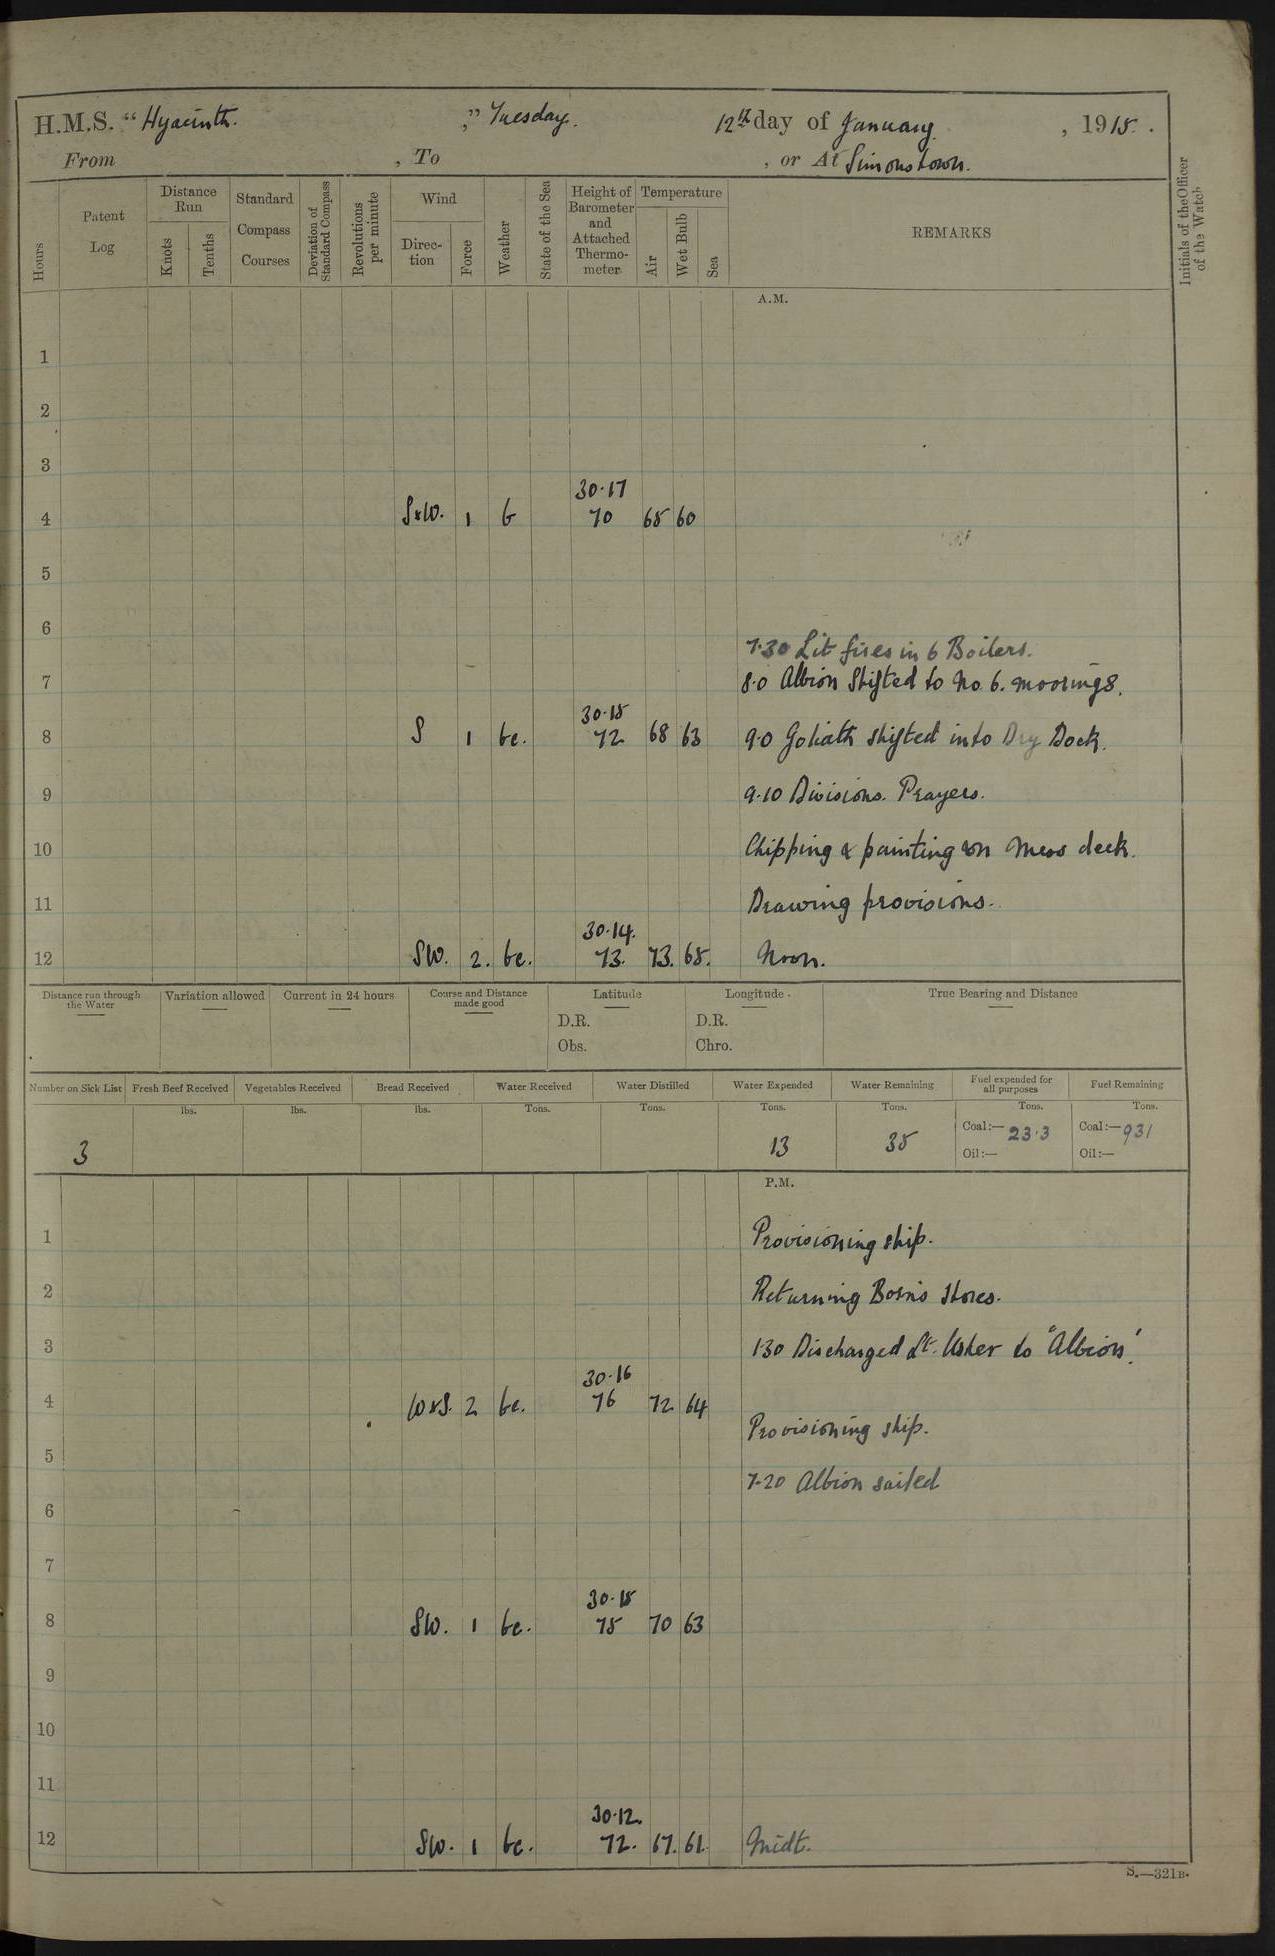 H.M.S. "Hyacinth. ," Tuesday. 12th day of January. , 1915.
From , To , or At Simonstown.
Hours
Patent Log
Distance Run
Knots
Tenths
Standard Compass Courses
Deviation of Standard Compass
Revolutions per minute
Wind
Direction
Force
Weather
State of the Sea
Height of Barometer and Attached Thermometer
Temperature
Air
Wet Bulb
Sea
REMARKS
Initials of the Officer of the Watch
A.M.
1
2
3
30.17
4 SxW. 1 b 70 65 60
5
6
7.30 Lit fires in 6 Boilers.
7 8.0 Albion Shifted to No. 6. moorings.
30.15
8 S 1 bc. 72 68 63 9.0 Goliath shifted into Dry Dock.
9 9.10 Divisions. Prayers.
10 Chipping & painting on Mess deck.
11 Drawing provisions.
30.14.
12 SW. 2. bc. 73. 73. 65. Noon.
Distance run through the Water
Variation allowed
Current in 24 hours
Course and Distance made good
Latitude
D.R.
Obs.
Longitude.
D.R.
Chro.
True Bearing and Distance
Number on Sick List
3
Fresh Beef Received
lbs.
Vegetables Received
lbs.
Bread Received
lbs.
Water Received
Tons.
Water Distilled
Tons.
Water Expended
Tons.
13
Water Remaining
Tons.
35
Fuel expended for all purposes
Tons.
Coal:— 23.3
Oil:—
Fuel Remaining
Tons.
Coal:— 931
Oil:—
P.M.
1 Provisioning ship.
2 Returning Bosn's Stores.
3 1.30 Discharged Lt. Usher to 'Albion'.
30.16
4 WxS. 2 bc. 76 72 64
Provisioning ship.
5
7.20 Albion sailed
6
7
30.15
8 SW. 1 bc. 75 70 63
9
10
11
30.12.
12 SW. 1 bc. 72. 67. 61. Midt.
S.—321B.